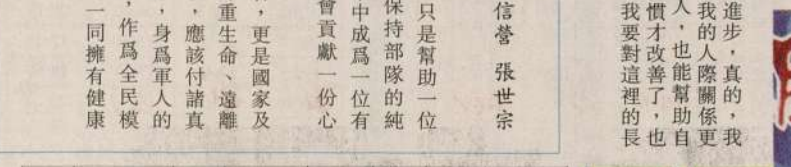 進步，真的，我
我的人際關係更
人，也能幫助自
慣才改善了，也
我要對這裡的長
信營 張世宗
只是幫助一位
保持部隊的純
中成爲一位有
會貢獻一份心
，更是國家及
重生命、遠離
，應該付諸真
，身爲軍人的
，作爲全民模
一同擁有健康